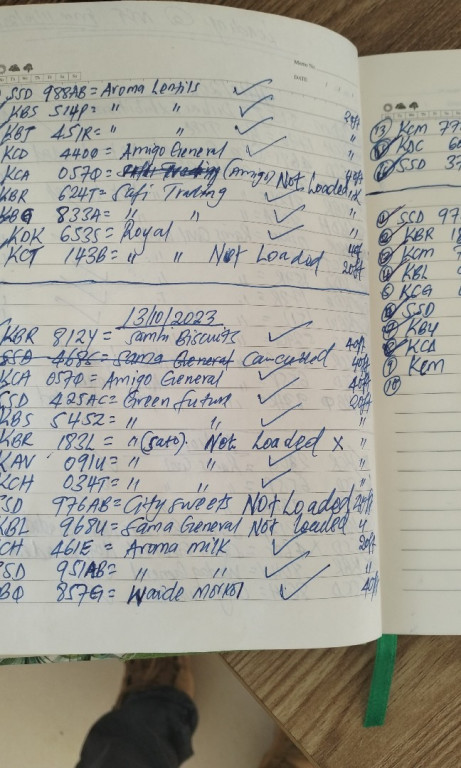 Memo No.
DATE
SSD 988AB = Aroma Lentils ✓
KBS 514P = " " ✓ 20ft
KBT 451R = " " ✓ "
KCD 440Q = Amigo General ✓ "
KCA 057Q = Safi Trading (Amigo) Not Loaded 40ft
KBR 624T = Safi Trading ✓
KBG 833A = " " ✓ "
KDK 653S = Royal ✓ "
KCT 143B = " " Not Loaded 40ft
20ft
13/10/2023
KBR 812Y = Sambi Biscuits ✓ 40ft
SSD 468C = Sama General Cancelled 40ft
KCA 057Q = Amigo General ✓ 40ft
SD 425AC = Green Future ✓ 20ft
KBS 545Z = " " ✓ "
KBR 183L = " (Sato). Not Loaded x "
KAV 091U = " " ✓ "
KCH 034T = " " ✓ "
SD 976AB = City Sweets NOT Loaded 20ft
KBL 968U = Sama General Not Loaded "
CH 461E = Aroma milk ✓ 20ft
SD 951AB = " " ✓ "
BQ 857G = Waide Market ✓ 40ft
13 KCM 77
KDC 60
SSD 37
SSD 97
KBR 18
KCM
KBL
KCG
SSD
KBU
KCA
9 KCM
10